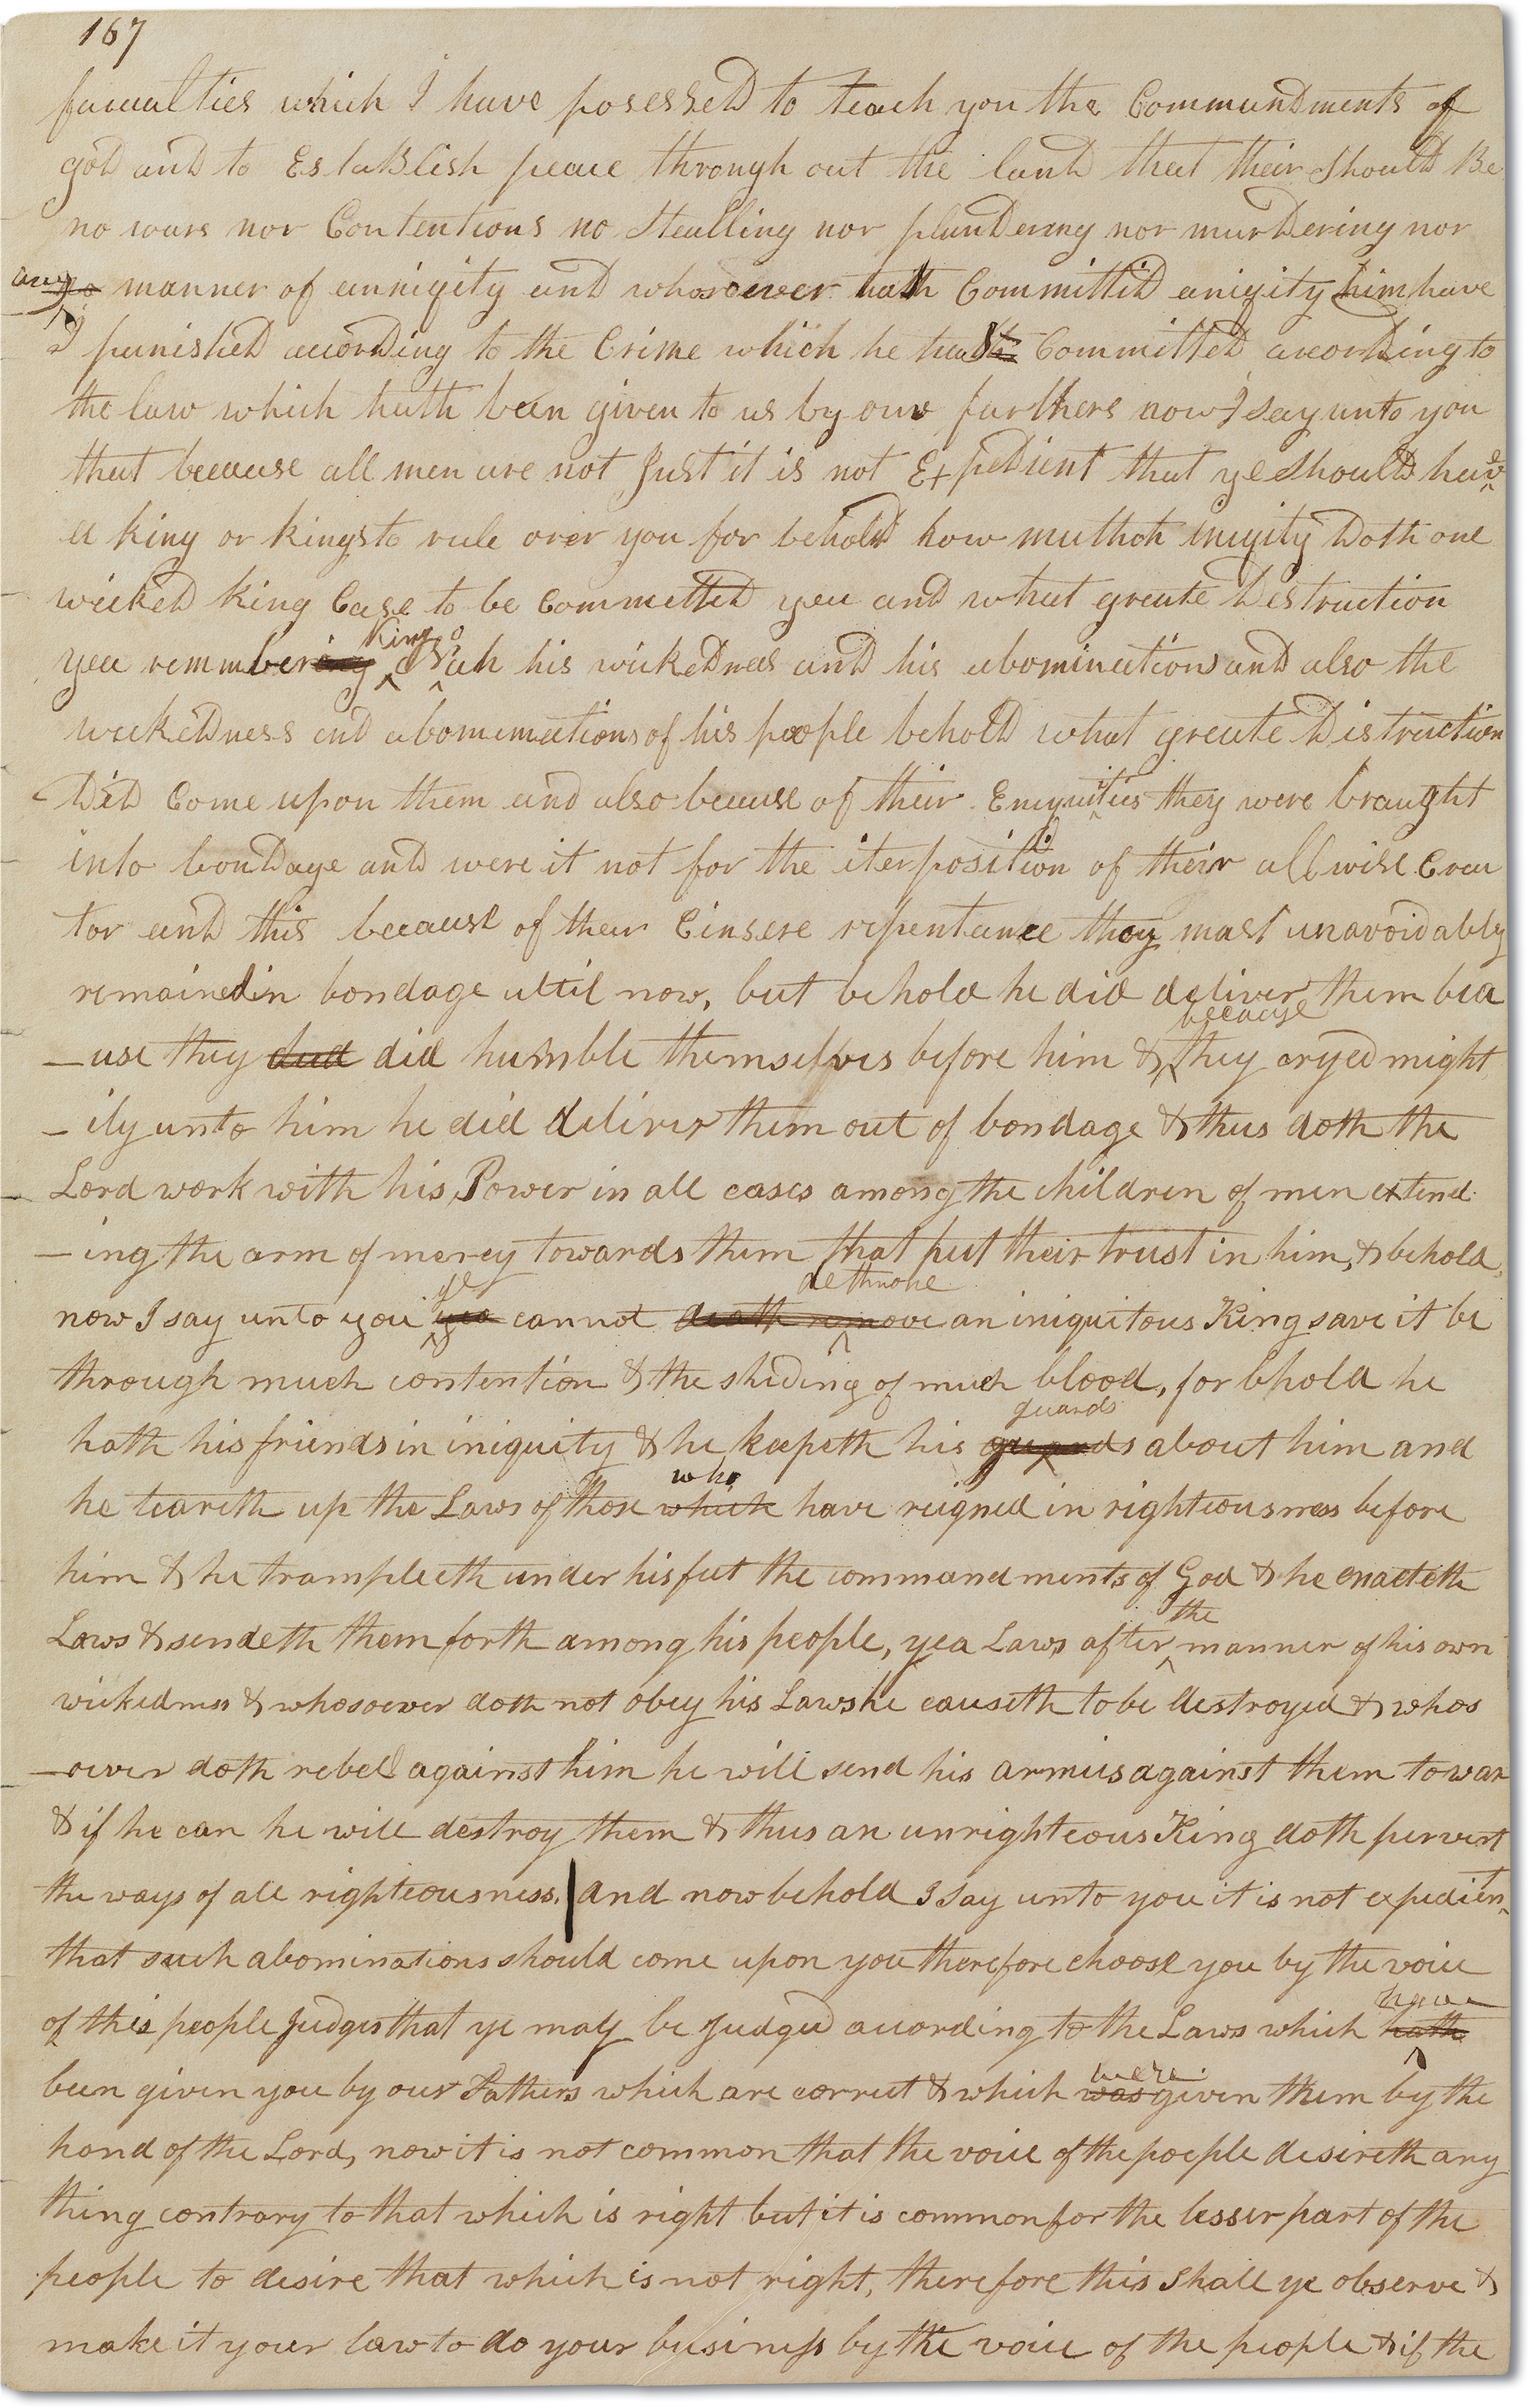 167
facualties which I have posessed to teach you the Commandments of
god and to Establish peace through out the land that their should Be
no wars nor Contentions no Stealling nor plundering nor murdering nor
any no manner of annigity and whosoever hath Committid aniqity him have
I punished according to the Crime which he hath Committed according to
the law which hath been given to us by our farthers now I say unto you
that becaause all men are not Just it is not Expedient that ye Should have
a king or kings to rule over you for behold how mutthch iniqity Doth one
wicked King Case to be Committed yea and what greate Destruction
King o
yea remmbering Noah his wickedness and his abominations and also the
wickedness and abominations of his people behold what greate Distruction
Did Come upon them and also because of their Eniquities they were braught
into bondage and were it not for the iterposition of their all wise Crea
tor and this becaause of their Cinsere repentance they mast unavoidably
remained in bondage ultil now, but behold he did deliver them bea
because
-use they dud did humble themselves before him & they cryed might
-ily unto him he did deliver them out of bondage & thus doth the
Lord work with his Power in all cases among the children of men extend
-ing the arm of mercy towards them that put their trust in him, & behold,
ye dethrone
now I say unto you yea cannot death remove an iniquitous King save it be
through much contention & the sheding of much blood, for bhold he
guards
hath his friends in iniquity & he keepeth his guards about him and
who
he teareth up the Laws of those which have reigned in righteousness before
him & he trampleeth under his feet the commandments of God & he enacteth
the
Laws & sendeth them forth among his people, yea Laws after manner of his own
wickedness & whosoever doth not obey his Laws he causeth to be destroyed & whos
-oever doth rebell against him he will send his armies against them to war
& if he can he will destroy them & thus an unrighteous King doth pervert
the ways of all righteousness, and now behold I say unto you it is not expedient
that such abominations should come upon you therefore choose you by the voice
have
of this people Judges that ye may be Judged according to the Laws which hath
were
been given you by our Fathers which are correct & which was given them by the
hand of the Lord, now it is not common that the voice of the poeple desireth any
thing contrary to that which is right but it is common for the lesser part of the
people to desire that which is not right, therefore this Shall ye observe &
make it your law to do your business by the voice of the people & if the